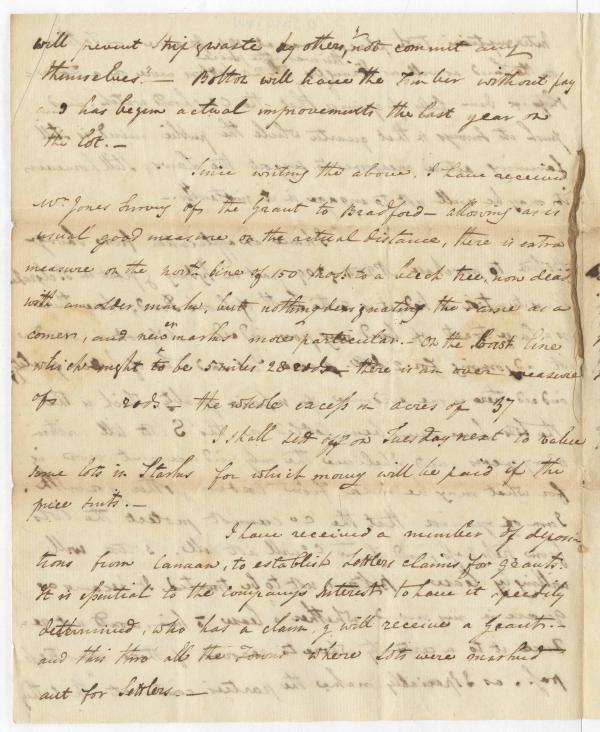 will prevent strip & waste by others, "not commit any
themselves." — Bolton will have the Timber without pay
and has begun actual improvements the last year on
the lot. —
Since writing the above, I have received
Mr. Jones Survey of the Grant to Bradford — allowing as is
usual good measure on the actual distance, there is extra
measure on the north line of 150 rods to a beech tree, now dead
with an older mark, but nothing designating the same as a
corner, and newer marks more particular. — On the West line
which ought to be 5 miles 28 rods — there is an over measure
of rods — the whole excess in acres of 37
I shall sett off on Tuesday next to value
some lots in Starks for which money will be paid if the
price suits. —
I have received a number of deposi-
tions from Canaan, to establish Settlers claims for grants.
It is essential to the companys Interest to have it speedily
determined, who has a claim, & will receive a Grant. —
and this thro all the Towns where lots were marked
out for Settlers. —